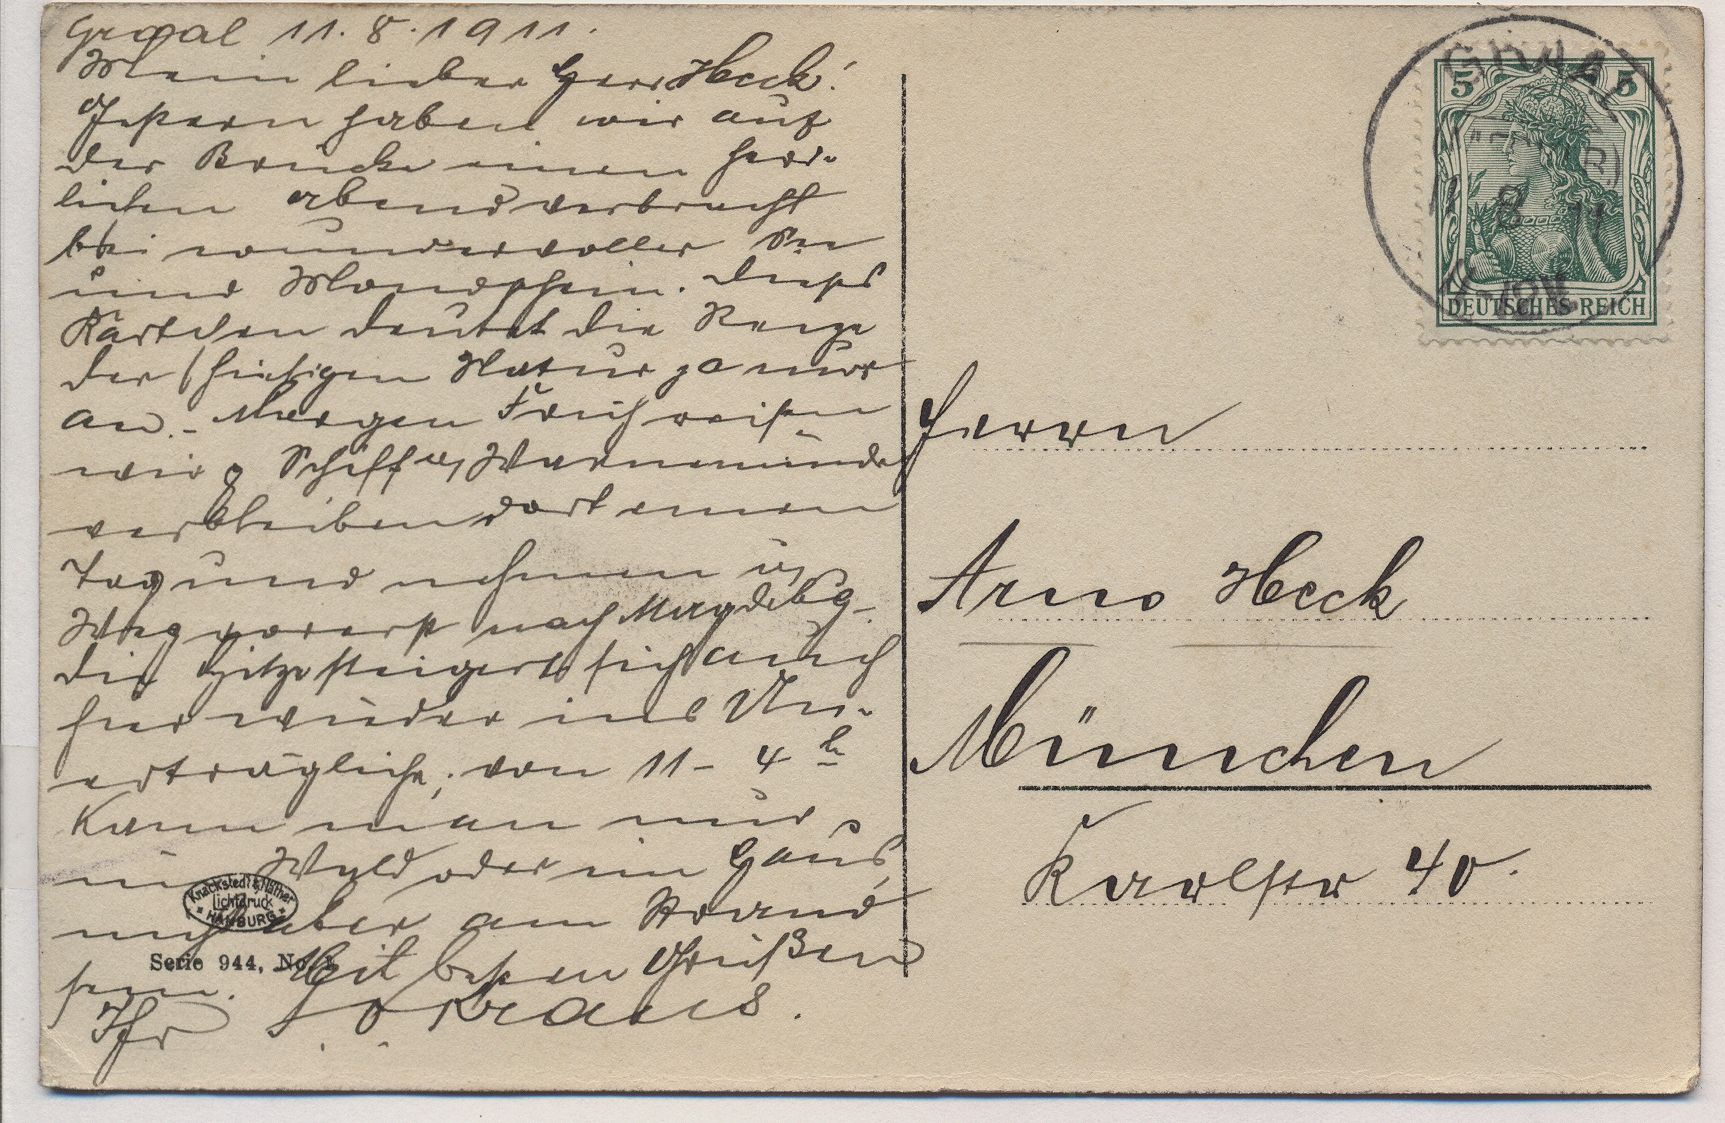 Graal 11.8.1911.
Mein lieber Herr Heck!
Gestern haben wir auf
der Brücke einen herr-
lichen Abend verbracht
bei wundervoller See
und Mondschein. Dieses
Kärtchen deutet die Reize
der hiesigen Natur ja nur
an. - Morgen Früh reisen
wir p Schiff n/ Warnemünde
verbleiben dort einen
Tag und nehmen u/
Weg vorerst nach Magdebg.
Die Hitze steigert sich auch
hier wieder ins Un-
erträgliche; von 11 - 4 h
kann man nur
im Wald oder im Haus,
nicht aber am Strand
sein. Mit besten Grüßen
Ihr Kraus.
Knackstedt & Näther
Lichtdruck
HAMBURG
Serie 944, No.
GRAAL
11 8 11
5 5
DEUTSCHES REICH
Herrn
Arno Heck
München
Karlstr 40.